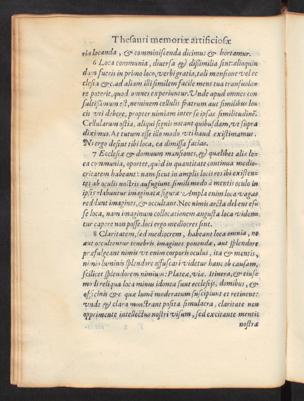 Thesauri memoriæ artificiosæ
ria locanda, & comminiscenda dicimus & hortamur.
6 Loca communia, diuersa & dissimilia sint aliquin
dum sueris in primo loco, verbi gratia, tali mensione vel ec
clesia &c. ad aliam illi similem facile mens tua transuolare
poterit, quod omnes experiuntur. Vnde apud omnes con
fultissimum est, neminem cellulis fratrum aut similibus lo
cis vti debere, propter nimiam inter se ipsas similitudinem.
Cellularum ostia, aliqui signis notant quibusdam, vt supra
diximus. At tutum esse illo modo vti haud existimamus.
Ni ergo desint tibi loca, ea dimissa facias.
7 Ecclesiæ & domnum mansiones, & quælibet alia lo
ca communia, oportet, quod in quantitate continua medio-
critatem habeant: nam sicut in amplis locis res ibi existen-
tes ab oculis nostris aufugiunt, simili modo à mentis oculo in
ipsis labuntur imaginata signa. Ampla enim loca vagas
reddunt imagines, & occultant. Nec nimis arcta debent es-
se loca, nam imaginum collocationem angusta loca viden-
tur capere non posse. loci ergo mediocres sint.
8 Claritatem, sed mediocrem, habeant loca omnia, ne
aut occultentur tenebris imagines ponenda, aut splendore
præfulgeant nimis: vt enim corporis oculus, ita & mentis,
nimio luminis splendore offuscari videtur hanc ob causam,
scilicet splendorem nimium: Plateæ, viæ, itinera, & eiuse
modi reliqua loca minus idonea sunt ecclesijs, domibus, &
officinis &c. quæ lumē moderatum suscipiunt et retinent:
vnde & clara monstrant posita simulacra, claritate non
opprimente intellectus nostri visum, sed excitante mentis
nostræ